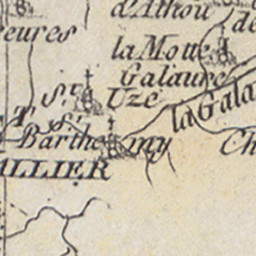 d'Athou
de
eures
la Motte
Galaure
St
Uzé
la Gala
St
Barthe
my
Ch
ALLIER